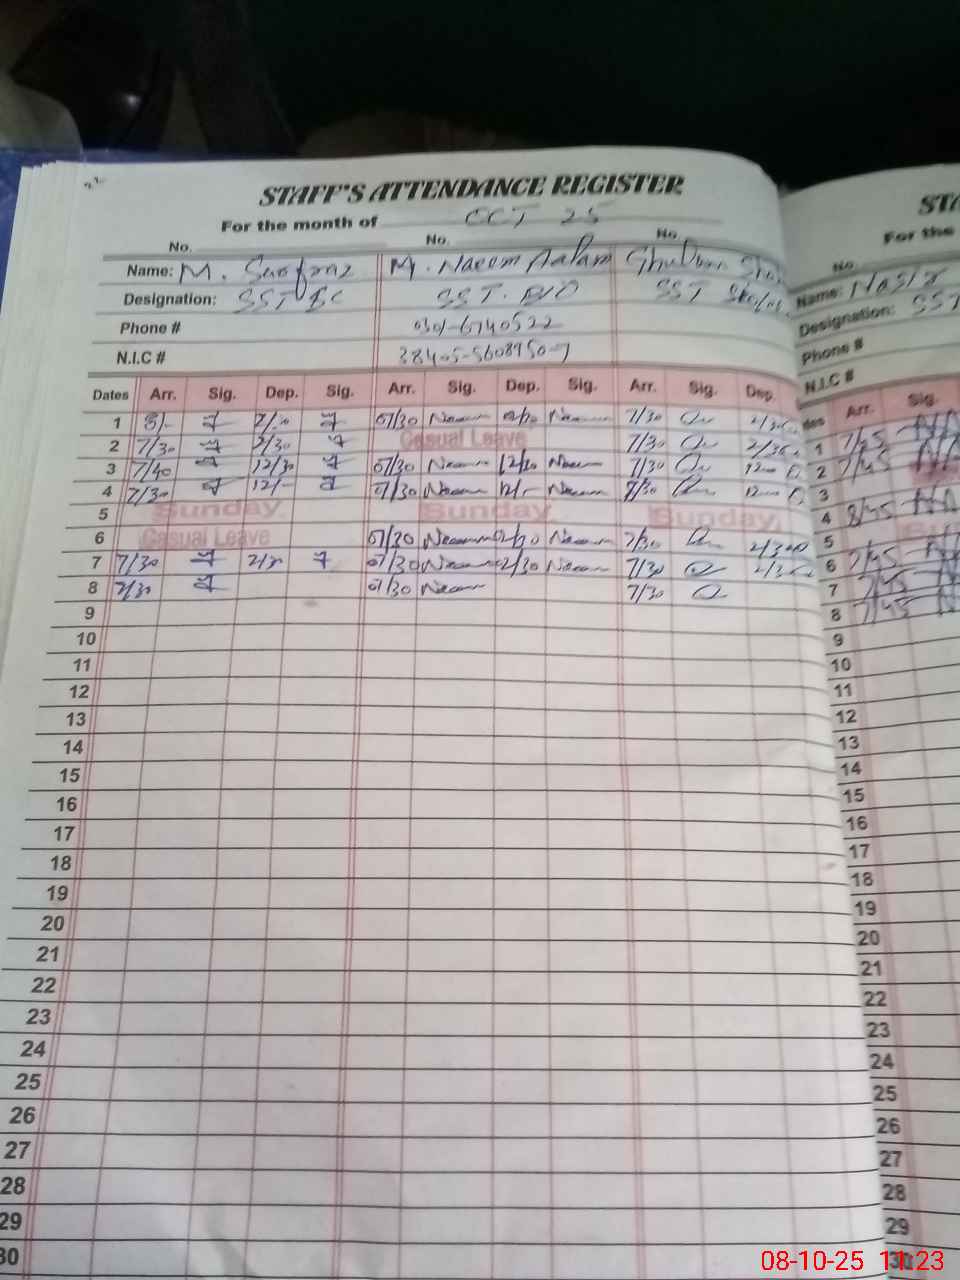 STAFF'S ATTENDANCE REGISTER
For the month of OCT 25
No. No. No.
Name: M. Sarfraz M. Naeem Aslam
Designation: SST SST. BIO SST
Phone # 0301-6740522
N.I.C # 38405-5608950-7
Dates Arr. Sig. Dep. Sig. Arr. Sig. Dep. Sig. Arr. Sig. Dep.
1 8/- 07/30 Naeem Naeem 7/30
2 7/30 2/30 Casual Leave 7/30
3 7/40 12/30 07/30 Naeem 12/30 Naeem 7/30
4 7/30 12/- 07/30 Naeem 12/- Naeem 7/30
5 Sunday Sunday Sunday
6 Casual Leave 07/30 Naeem 2/30 Naeem 7/30
7 7/30 2/30 07/30 Naeem 2/30 Naeem 7/30
8 7/30 07/30 Naeem 7/30
9
10
11
12
13
14
15
16
17
18
19
20
21
22
23
24
25
26
27
28
29
30
STA
For the
No.
Name: Nasir
Designation: SST
Phone #
N.I.C #
Arr. Sig.
1 7/45
2 7/45
3
4 8/45
5
6 7/45
7 7/45
8 7/45
9
10
11
12
13
14
15
16
17
18
19
20
21
22
23
24
25
26
27
28
29
30
08-10-25 11:23